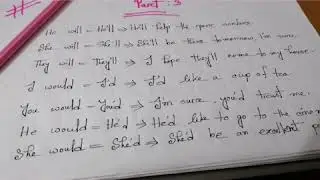 Part : 3
He will = He'll ⇒ He'll help the same numbers
She will = She'll ⇒ She'll be there tomorrow, I'm sure.
They will = They'll ⇒ I hope they'll come to my house.
I would = I'd ⇒ I'd like a cup of tea
You would = You'd ⇒ I'm sure you'd treat me.
He would = He'd ⇒ He'd like to go to the
She would = She'd ⇒ She'd be an excellent